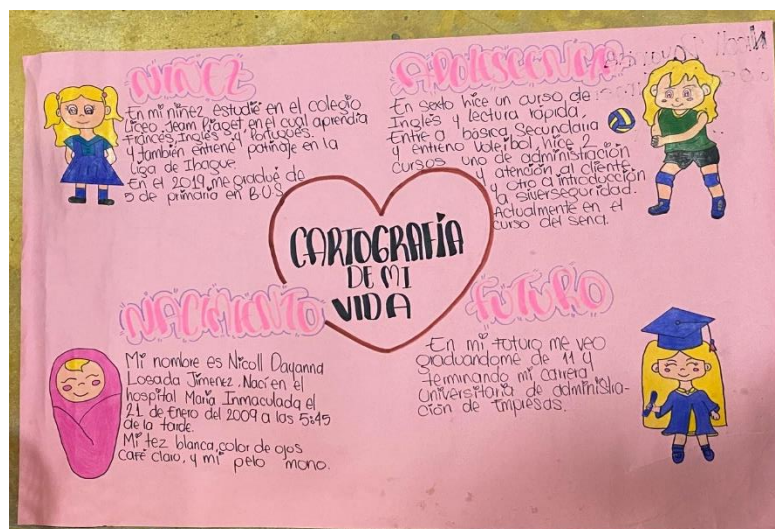 NIÑEZ
En mi niñez estudié en el colegio
Liceo Jeam Piaget, en el cual aprendia
Francés, Inglés y Portugués.
y también entrené patinaje en la
liga de Ibague.
En el 2019 me gradué de
5 de primaria en BUS
ADOLESCENCIA
En sexto hice un curso de
Ingles y lectura rápida,
Entre a básica Secundaria
y entreno Voleibol, hice 2
cursos uno de administración
y atención al cliente
y otro a introducción
a siverseguridad.
Actualmente en el
curso del sena.
CARTOGRAFÍA
DE MI
VIDA
NACIMIENTO
Mi nombre es Nicoll Dayanna
Losada Jimenez. Naci en el
hospital Maria Inmaculada el
21 de Enero del 2009 a las 5:45
de la tarde.
Mi tez blanca, color de ojos
café claro, y mi pelo mono.
FUTURO
En mi futuro me veo
graduandome de 11 y
terminando mi carrera
Universitaria de administra-
ción de Empresas.